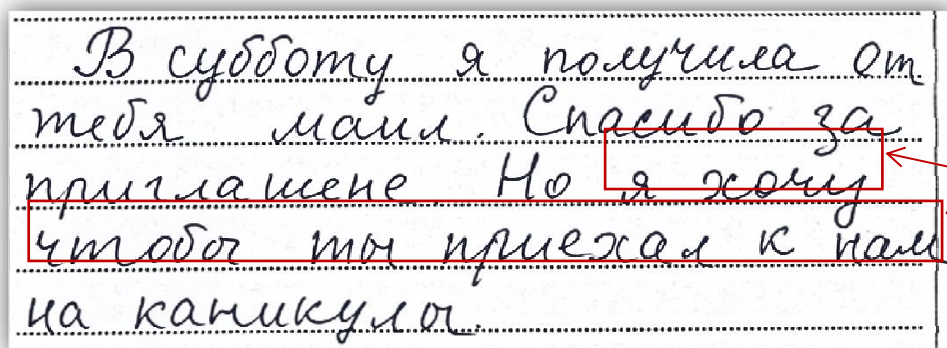 В субботу я получила от
тебя маил. Спасибо за
приглашене Но я хочу
чтобы ты приехал к нам
на каникулы.